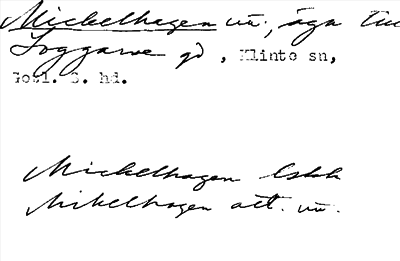 Mickelhagen uu:, äga till
Loggarve gd, Klinte sn,
Gotl. S. hd.
Mickelhagen Esk
Mikelhagen att. uu: